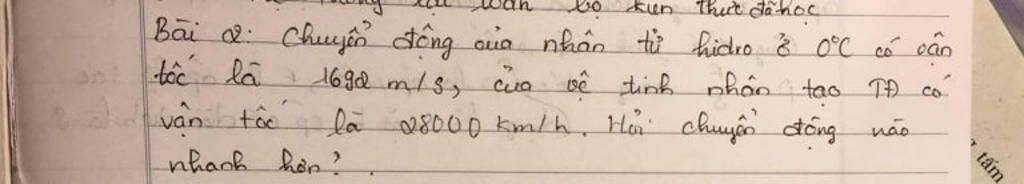 kiến thức đã học
Bài 2: Chuyển động của phân tử hidro ở 0°C có vận
tốc là 1692 m/s, của vệ tinh nhân tạo TĐ có
vận tốc là 28000 km/h. Hỏi chuyển động nào
nhanh hơn?.
tấm